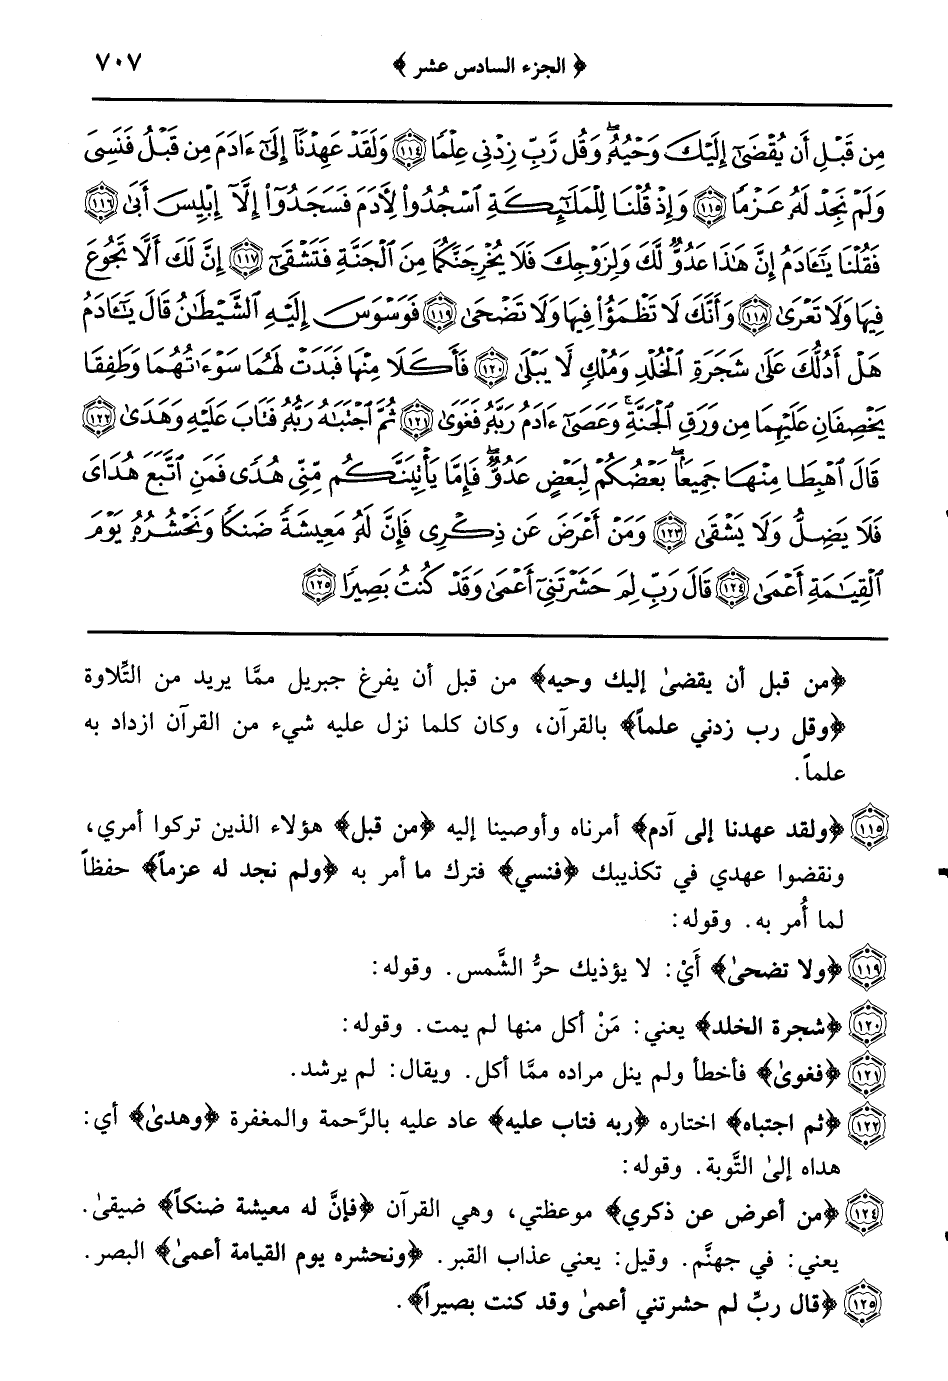 ﴿ الجزء السادس عشر ﴾ ٧٠٧
مِن قَبْلِ أَن يُقْضَىٰٓ إِلَيْكَ وَحْيُهُۥۖ وَقُل رَّبِّ زِدْنِي عِلْمًا ﴿١١٤﴾ وَلَقَدْ عَهِدْنَآ إِلَىٰٓ ءَادَمَ مِن قَبْلُ فَنَسِيَ
وَلَمْ نَجِدْ لَهُۥ عَزْمًا ﴿١١٥﴾ وَإِذْ قُلْنَا لِلْمَلَٰٓئِكَةِ ٱسْجُدُوا۟ لِأٓدَمَ فَسَجَدُوٓا۟ إِلَّآ إِبْلِيسَ أَبَىٰ ﴿١١٦﴾
فَقُلْنَا يَٰٓـَٔادَمُ إِنَّ هَٰذَا عَدُوٌّ لَّكَ وَلِزَوْجِكَ فَلَا يُخْرِجَنَّكُمَا مِنَ ٱلْجَنَّةِ فَتَشْقَىٰٓ ﴿١١٧﴾ إِنَّ لَكَ أَلَّا تَجُوعَ
فِيهَا وَلَا تَعْرَىٰ ﴿١١٨﴾ وَأَنَّكَ لَا تَظْمَؤُا۟ فِيهَا وَلَا تَضْحَىٰ ﴿١١٩﴾ فَوَسْوَسَ إِلَيْهِ ٱلشَّيْطَٰنُ قَالَ يَٰٓـَٔادَمُ
هَلْ أَدُلُّكَ عَلَىٰ شَجَرَةِ ٱلْخُلْدِ وَمُلْكٍ لَّا يَبْلَىٰ ﴿١٢٠﴾ فَأَكَلَا مِنْهَا فَبَدَتْ لَهُمَا سَوْءَٰتُهُمَا وَطَفِقَا
يَخْصِفَانِ عَلَيْهِمَا مِن وَرَقِ ٱلْجَنَّةِۚ وَعَصَىٰٓ ءَادَمُ رَبَّهُۥ فَغَوَىٰ ﴿١٢١﴾ ثُمَّ ٱجْتَبَٰهُ رَبُّهُۥ فَتَابَ عَلَيْهِ وَهَدَىٰ ﴿١٢٢﴾
قَالَ ٱهْبِطَا مِنْهَا جَمِيعًۢاۖ بَعْضُكُمْ لِبَعْضٍ عَدُوٌّۖ فَإِمَّا يَأْتِيَنَّكُم مِّنِّي هُدًى فَمَنِ ٱتَّبَعَ هُدَايَ
فَلَا يَضِلُّ وَلَا يَشْقَىٰ ﴿١٢٣﴾ وَمَنْ أَعْرَضَ عَن ذِكْرِي فَإِنَّ لَهُۥ مَعِيشَةً ضَنكًا وَنَحْشُرُهُۥ يَوْمَ
ٱلْقِيَٰمَةِ أَعْمَىٰ ﴿١٢٤﴾ قَالَ رَبِّ لِمَ حَشَرْتَنِيٓ أَعْمَىٰ وَقَدْ كُنتُ بَصِيرًا ﴿١٢٥﴾
﴿من قبل أن يقضىٰ إليك وحيه﴾ من قبل أن يفرغ جبريل ممَّا يريد من التِّلاوة
﴿وقل رب زدني علماً﴾ بالقرآن، وكان كلما نزل عليه شيء من القرآن ازداد به
علماً.
﴿١١٥﴾ ﴿ولقد عهدنا إلى آدم﴾ أمرناه وأوصينا إليه ﴿من قبل﴾ هؤلاء الذين تركوا أمري،
ونقضوا عهدي في تكذيبك ﴿فنسي﴾ فترك ما أمر به ﴿ولم نجد له عزماً﴾ حفظاً
لما أُمر به. وقوله:
﴿١١٩﴾ ﴿ولا تضحىٰ﴾ أَيْ: لا يؤذيك حرُّ الشَّمس. وقوله:
﴿١٢٠﴾ ﴿شجرة الخلد﴾ يعني: مَنْ أكل منها لم يمت. وقوله:
﴿١٢١﴾ ﴿فغوىٰ﴾ فأخطأ ولم ينل مراده ممَّا أكل. ويقال: لم يرشد.
﴿١٢٢﴾ ﴿ثم اجتباه﴾ اختاره ﴿ربه فتاب عليه﴾ عاد عليه بالرَّحمة والمغفرة ﴿وهدىٰ﴾ أي:
هداه إلىٰ التَّوبة. وقوله:
﴿١٢٤﴾ ﴿من أعرض عن ذكري﴾ موعظتي، وهي القرآن ﴿فإنَّ له معيشة ضنكاً﴾ ضيقىٰ.
يعني: في جهنَّم. وقيل: يعني عذاب القبر. ﴿ونحشره يوم القيامة أعمىٰ﴾ البصر.
﴿١٢٥﴾ ﴿قال ربِّ لم حشرتني أعمىٰ وقد كنت بصيراً﴾.